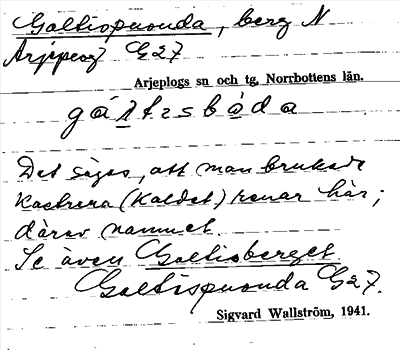 Galtispuonda, berg N
Arjeplog G27
Arjeplogs sn och tg, Norrbottens län.
gáltsbåda
Det säges, att man brukade
kastrera (kaldet) renar här;
därav namnet.
Se även Galtisberget
Galtispuonda G27.
Sigvard Wallström, 1941.